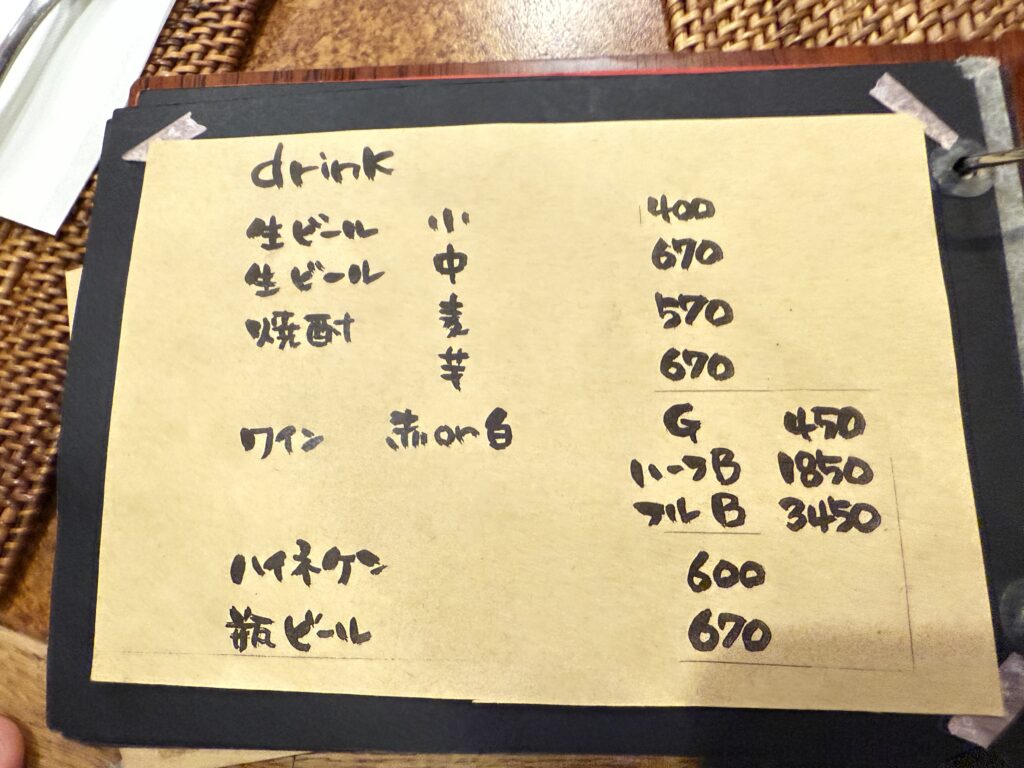 drink
生ビール 小 400
生ビール 中 670
焼酎 麦 570
芋 670
ワイン 赤or白 G 450
ハーフB 1850
フルB 3450
ハイネケン 600
瓶ビール 670